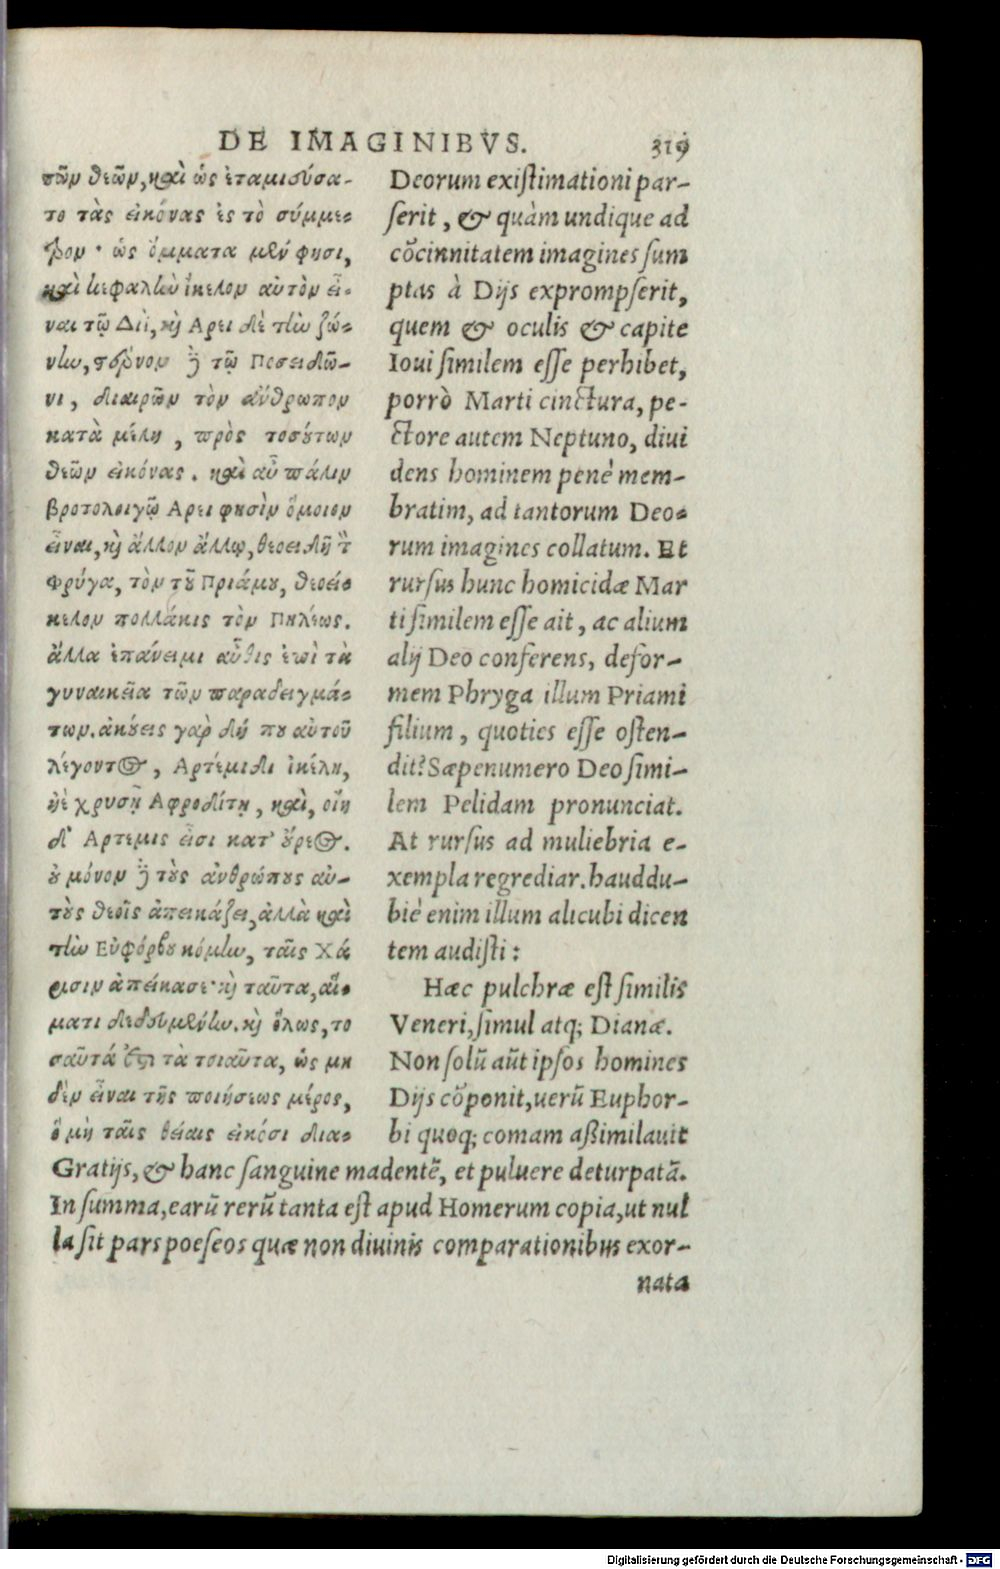 DE IMAGINIBVS. 319
τῶν θεῶν, καὶ ὡς ἐταμιεύσα-
το τὰς εἰκόνας ἐς τὸ σύμμε-
τρον· ὡς ὄμματα μέν φησι,
καὶ κεφαλὴν ἴκελον αὐτὸν εἶ-
ναι τῷ Διῒ, κỳ Αρει δὲ τὴν ζώ-
νην, στέρνον ἢ τῷ Ποσειδῶ-
νι, διαιρῶν τὸν ἄνθρωπον
κατὰ μέλη, πρὸς τοσούτων
θεῶν εἰκόνας. καὶ αὖ πάλιν
βροτολοιγῷ Αρει φησὶν ὅμοιον
εἶναι, καὶ ἄλλον ἄλλῳ, θεοειδῆ τ̀
Φρύγα, τὸν τοῦ Πριάμου, θεοεί-
κελον πολλάκις τὸν Πηλέως.
ἄλλα ἐπάνειμι αὖθις ἐπὶ τὰ
γυναικεῖα τῶν παραδειγμά-
των. ἀκούεις γὰρ δή που αὐτοῦ
λέγοντος, Αρτέμιδι ἰκέλη,
ἠὲ χρυσῇ Αφροδίτῃ, καὶ, οἵη
δ' Αρτεμις εἶσι κατ' οὔρεος.
οὐ μόνον ἢ τοὺς ἀνθρώπους αὐ-
τοὺς θεοῖς ἀπεικάζει, ἀλλὰ καὶ
τὴν Εὐφόρβου κόμην, ταῖς Χά
ρισιν ἀπείκασε· καὶ ταῦτα, αἵ-
ματι δεδευμένην. καὶ ὅλως, το
σαῦτά ἐστι τὰ τοιαῦτα, ὡς μη
δὲν εἶναι τῆς ποιήσεως μέρος,
ὃ μὴ ταῖς θείαις εἰκόσι δια-
Deorum existimationi par-
serit, & quàm undique ad
cōcinnitatem imagines sum
ptas à Dijs exprompserit,
quem & oculis & capite
Ioui similem esse perhibet,
porrò Marti cinctura, pe-
ctore autem Neptuno, diui
dens hominem penè mem-
bratim, ad tantorum Deo-
rum imagines collatum. Et
rursus hunc homicidæ Mar
ti similem esse ait, ac alium
alij Deo conferens, defor-
mem Phryga illum Priami
filium, quoties esse osten-
dit? Sæpenumero Deo simi-
lem Pelidam pronunciat.
At rursus ad muliebria e-
xempla regrediar. hauddu-
biè enim illum alicubi dicen
tem audisti:
Hæc pulchræ est similis
Veneri, simul atq; Dianæ.
Non solū aūt ipsos homines
Dijs cōponit, uerū Euphor-
bi quoq; comam aßimilauit
Gratijs, & hanc sanguine madentē, et puluere deturpatā.
In summa, earū rerū tanta est apud Homerum copia, ut nul
la sit pars poeseos quæ non diuinis comparationibus exor-
nata
Digitalisierung gefördert durch die Deutsche Forschungsgemeinschaft - DFG